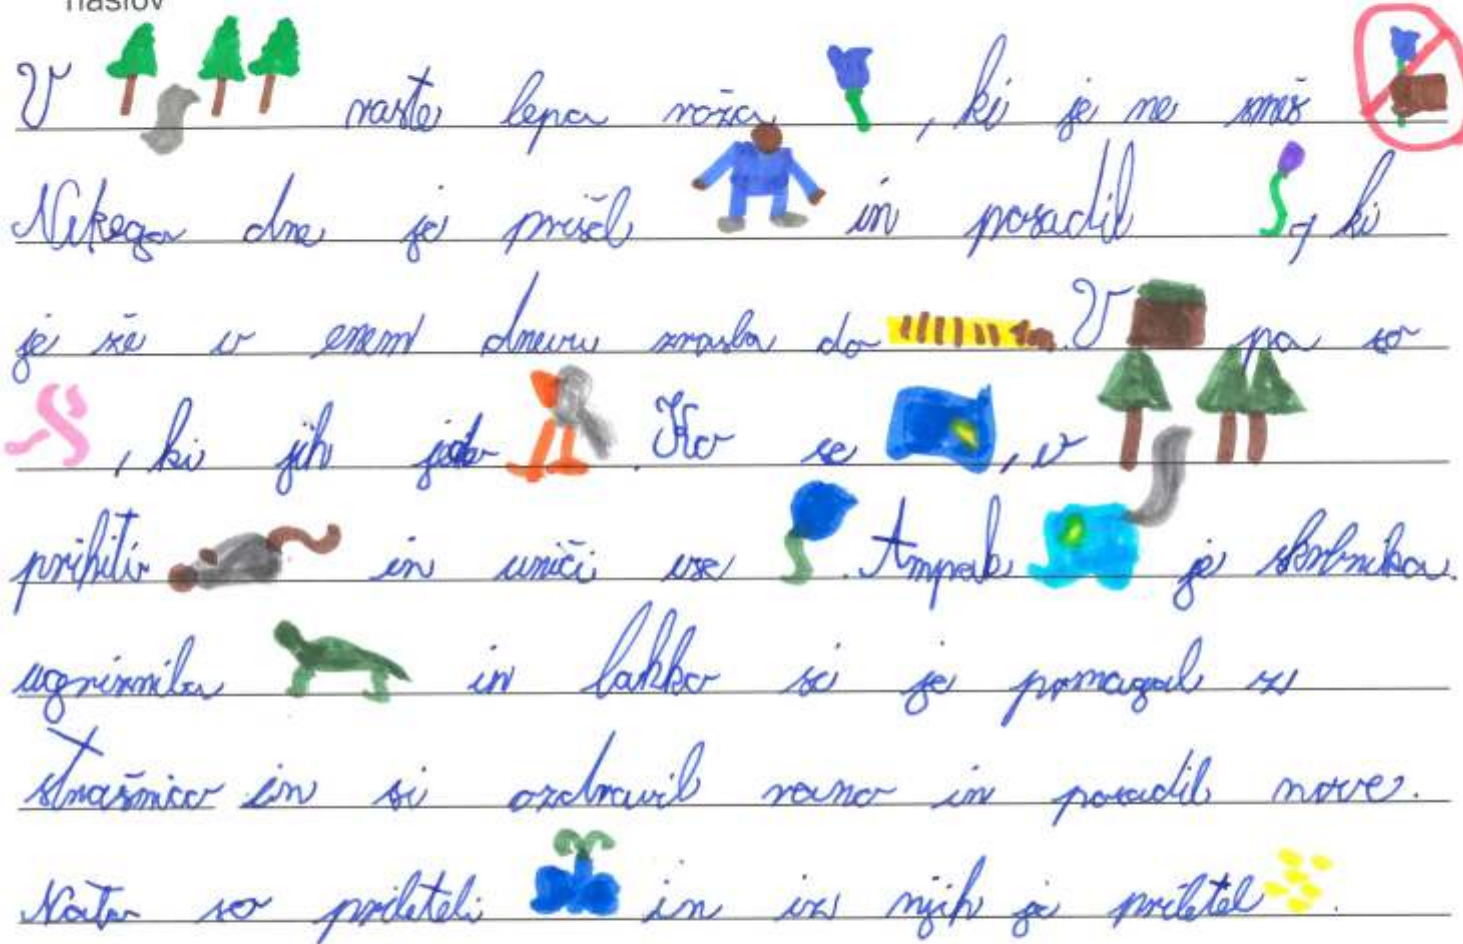 naslov
V raste lepa roža , ki je ne smeš
Nekega dne je prišel in posadil , ki
je že v enem dnevu zrasla do . V pa so
, ki jih jede . Ko se , v
prihiti in uniči vse . Ampak je skrbnika
ugriznila in lahko si je pomagal z
strašnico in si ozdravil rano in posadil nove.
Nato so prileteli in iz njih je priletel .